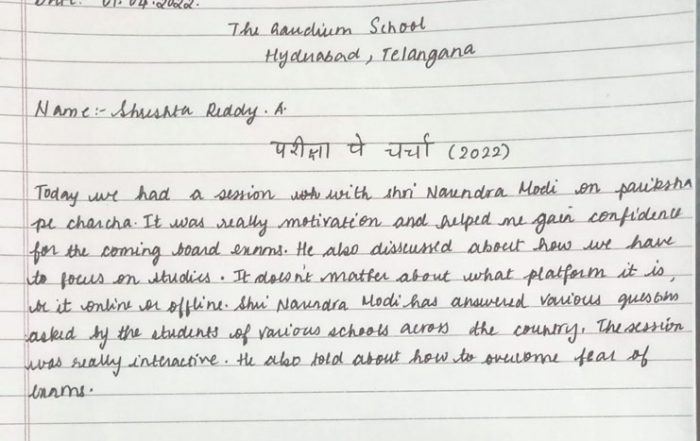 Date: 01.04.2022.
The Gaudium School
Hyderabad, Telangana
Name:- Shreshta Reddy. A.
परीक्षा पे चर्चा (2022)
Today we had a session with shri Narendra Modi on pariksha
pe charcha. It was really motivation and helped me gain confidence
for the coming board exams. He also discussed about how we have
to focus on studies. It doesn't matter about what platform it is,
be it online or offline. Shri Narendra Modi has answered various questions
asked by the students of various schools across the country. The session
was really interactive. He also told about how to overcome fear of
exams.